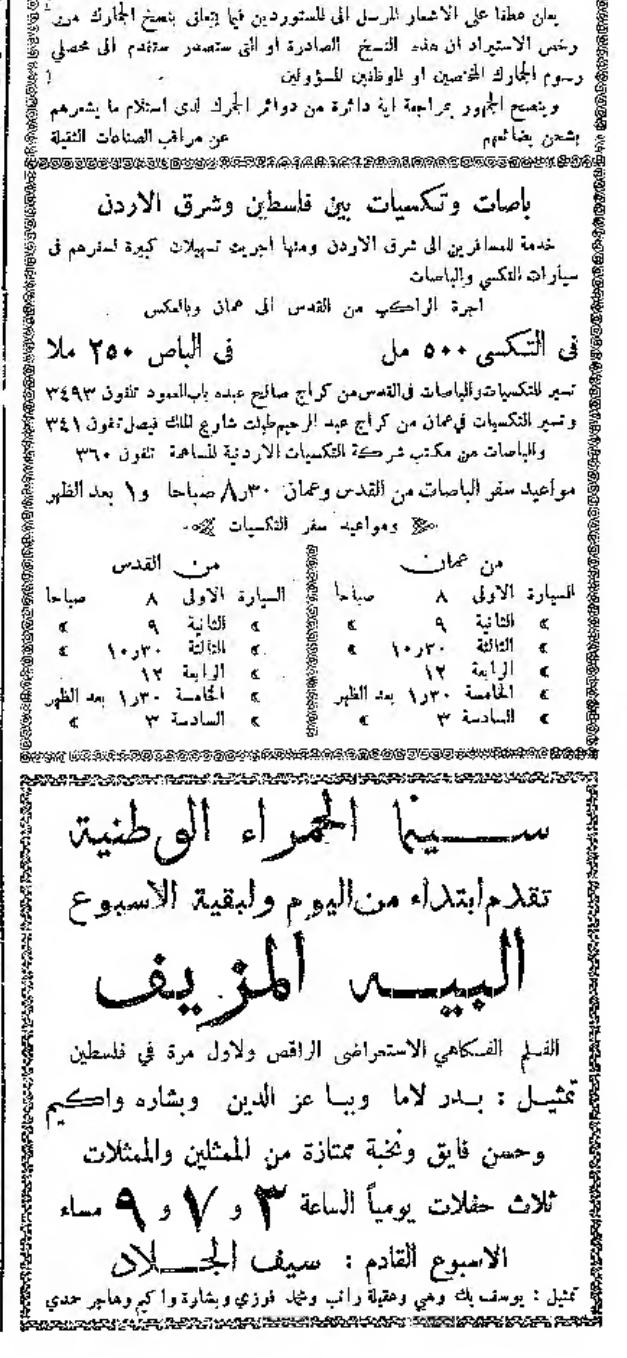 يعلن عطفا على الاشعار المرسل الى المستوردين فيما يتعلق بنسخ الجمارك من
رخص الاستيراد ان هذه النسخ الصادرة او التي ستصدر ستقدم الى محصلي
رسوم الجمارك المختصين او الموظفين المسؤولين
وينصح الجمهور بمراجعة اية دائرة من دوائر الجمرك لدى استلام ما يشعرهم
بشحن بضائعهم عن مراقب الصناعات الثقيلة
باصات وتكسيات بين فلسطين وشرق الاردن
خدمة للمسافرين الى شرق الاردن ومنها اجريت تسهيلات كبيرة لسفرهم في
سيارات التكسي والباصات
اجرة الراكب من القدس الى عمان وبالعكس
في التكسي ٥٠٠ مل في الباص ٢٥٠ ملا
تسير التكسيات والباصات في القدس من كراج صالح عبده باب العمود تلفون ٣٤٩٣
وتسير التكسيات في عمان من كراج عبد الرحيم طبلت شارع الملك فيصل تلفون ٣٤١
والباصات من مكتب شركة التكسيات الاردنية المساهمة تلفون ٣٦٠
مواعيد سفر الباصات من القدس وعمان ٣٠ر٨ صباحا و١ بعد الظهر
ومواعيد سفر التكسيات
من عمان
السيارة الاولى ٨ صباحا
» الثانية ٩ »
» الثالثة ٣٠ر١٠ »
» الرابعة ١٢
» الخامسة ٣٠ر١ بعد الظهر
» السادسة ٣ »
من القدس
السيارة الاولى ٨ صباحا
» الثانية ٩ »
» الثالثة ٣٠ر١٠ »
» الرابعة ١٢
» الخامسة ٣٠ر١ بعد الظهر
» السادسة ٣ »
سينما الحمراء الوطنية
تقدم ابتداء من اليوم ولبقية الاسبوع
البيه المزيف
الفلم الفكاهي الاستعراضي الراقص ولاول مرة في فلسطين
تمثيل : بدر لاما وببا عز الدين وبشاره واكيم
وحسن فايق ونخبة ممتازة من الممثلين والممثلات
ثلاث حفلات يومياً الساعة ٣ و ٧ و ٩ مساء
الاسبوع القادم : سيف الجلاد
تمثيل : يوسف بك وهبي وعقيلة راتب ومحمد فوزي وبشارة واكيم وهاجر حمدي